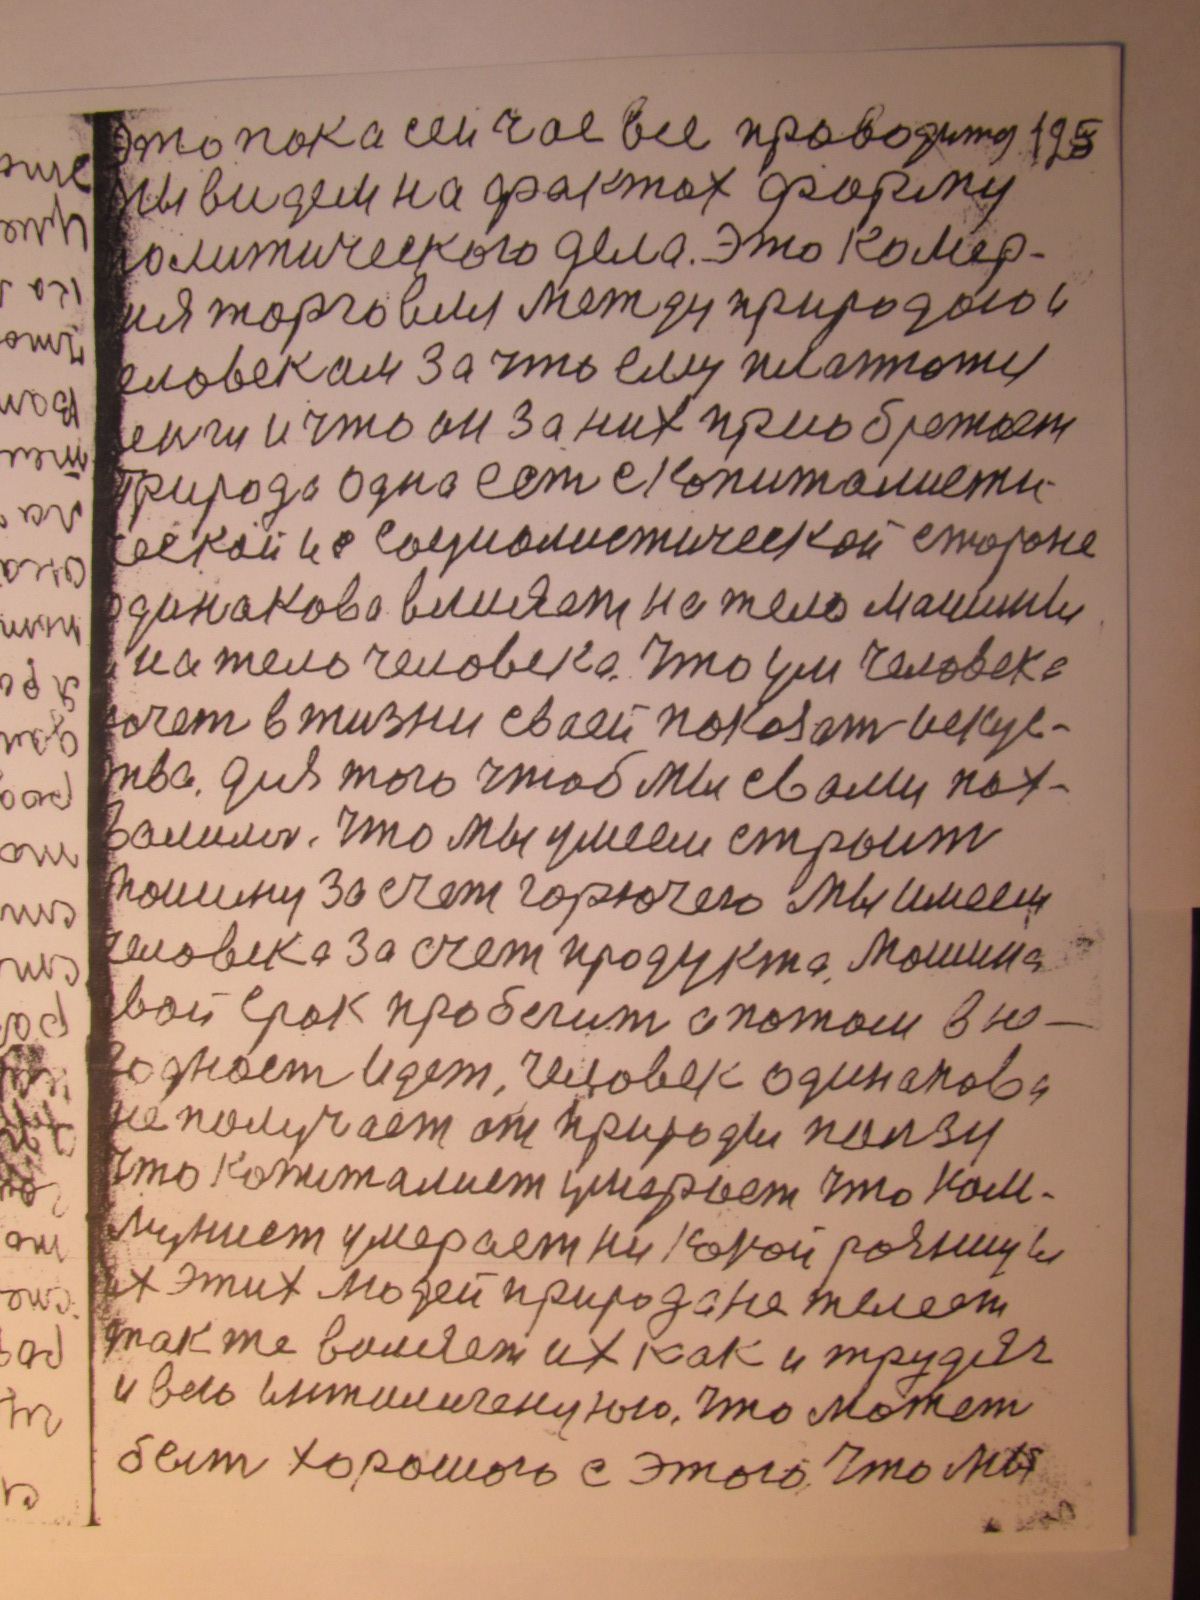 это пока сейчас все проводитд 195
мы видем на фактах форму
политического дела. Это комер-
ия торговля между природою и
еловекам за что ему платють
енги и что он за них приобретает
Природа одна ест с копиталисти-
ческой и с социолистической стороне
одинакова влияет на тело машины
и на тело человека. Что ум человека
хочет в жизни сваей показат искус-
тва. для того чтоб мы с вами пох-
валилис. Что мы умеем строит
мошину за счет горючего мы имеем
человека за счет продукта. Мошина
свой срок пробегит а потом в не-
годност идет, человек одинакова
не получает от природы ползу
что копиталист умерает что ком-
мунист умерает ни какой розницы
их этих людей природа не желеет
также воляет их как и трудяг
и всю интилигенцию. Что может
бет хорошого с этого. Что мы